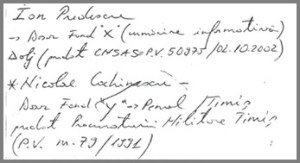 Ion Predescu
→ Dosar Fond "X" (urmărire informativă)
Dolj (predat CNSAS P.V. 50975/02.10.2002)
* Nicolae Cochinescu –
Dosar Fond "Y" → Penal / Timiș
predat Procuraturii Militare Timiș
(P.V. M-79/1991)